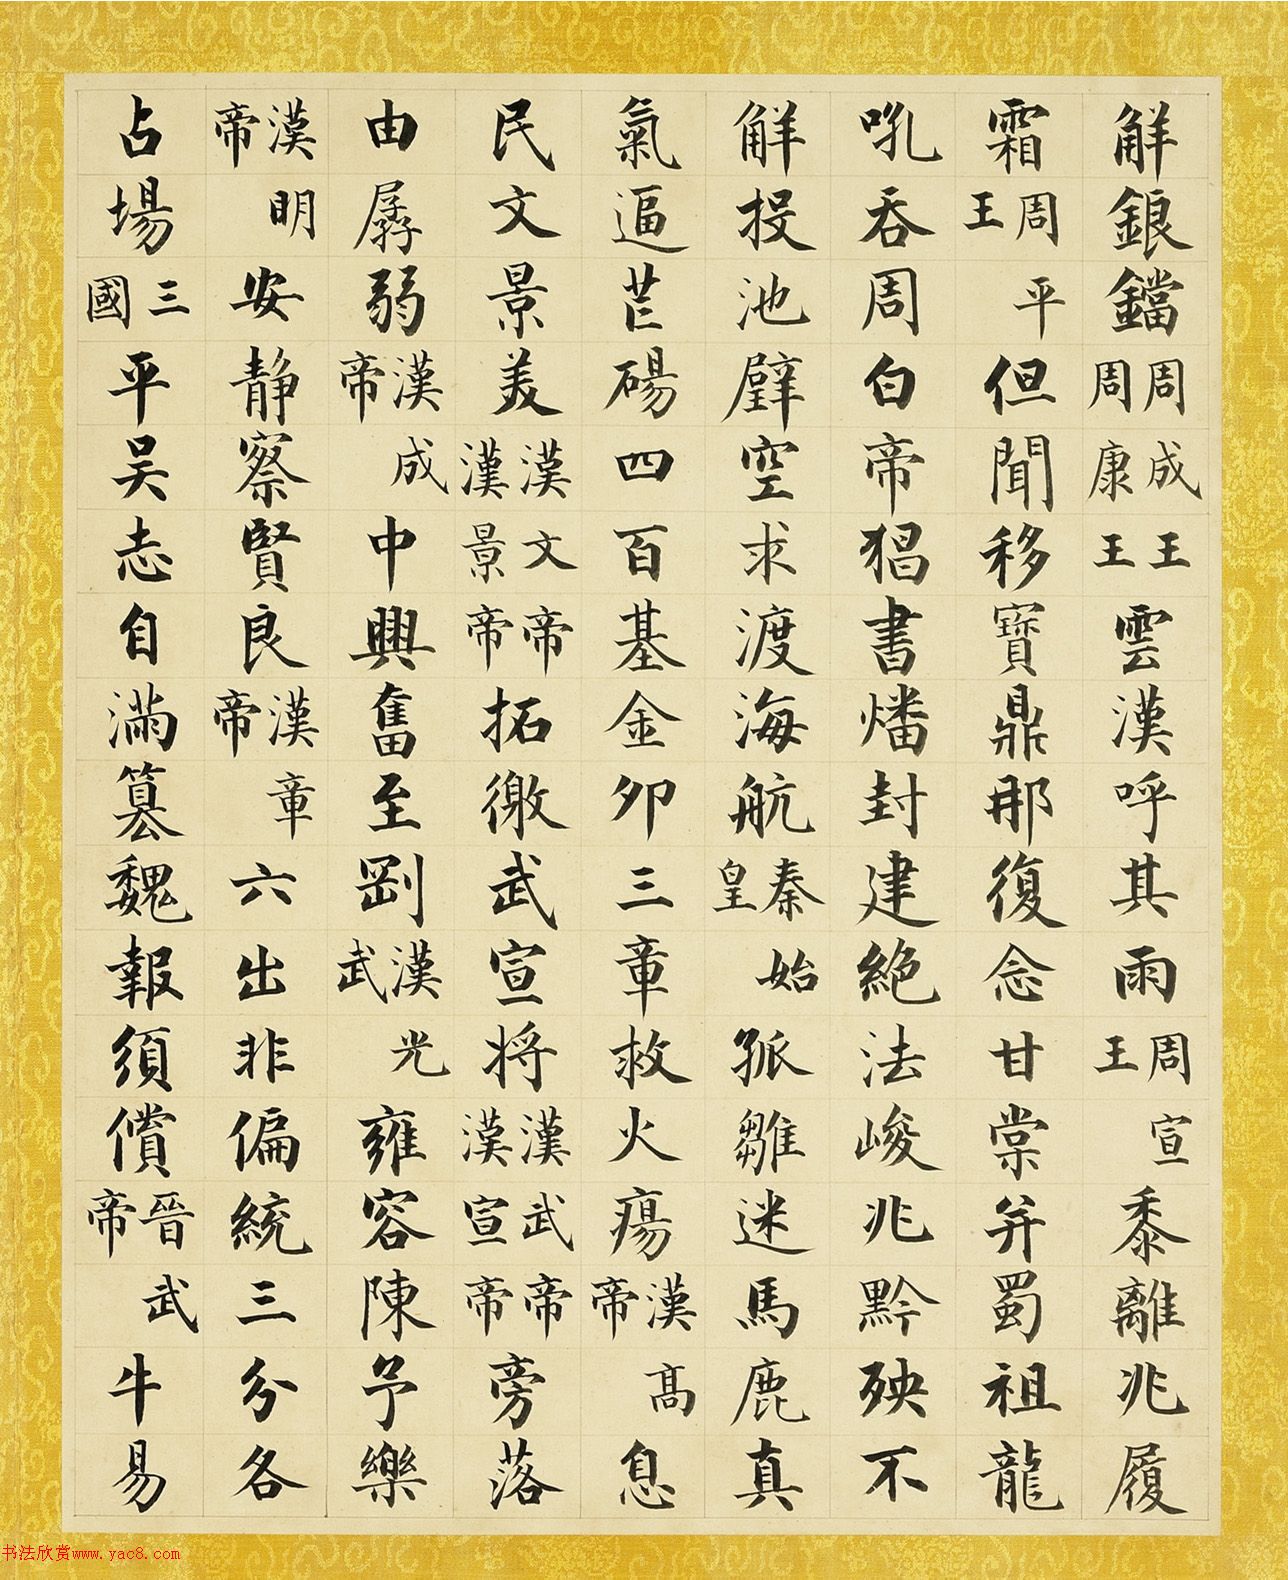 觧鋃鐺周成王周康王雲漢呼其雨周宣王黍離兆履
霜周平王但聞移寶鼎那復念甘棠并蜀祖龍
吼吞周白帝猖書燔封建絕法峻兆黔殃不
觧投池璧空求渡海航秦始皇孤雛迷馬鹿真
氣逼芒碭四百基金卯三章救火瘍漢高帝息
民文景美漢文帝漢景帝拓徼武宣將漢武帝漢宣帝旁落
由孱弱漢成帝中興奮至剛漢光武雍容陳予樂
漢明帝安靜察賢良漢章帝六出非偏統三分各
占場三國平吳志自滿篡魏報須償晉武帝牛易
书法欣赏www.yac8.com